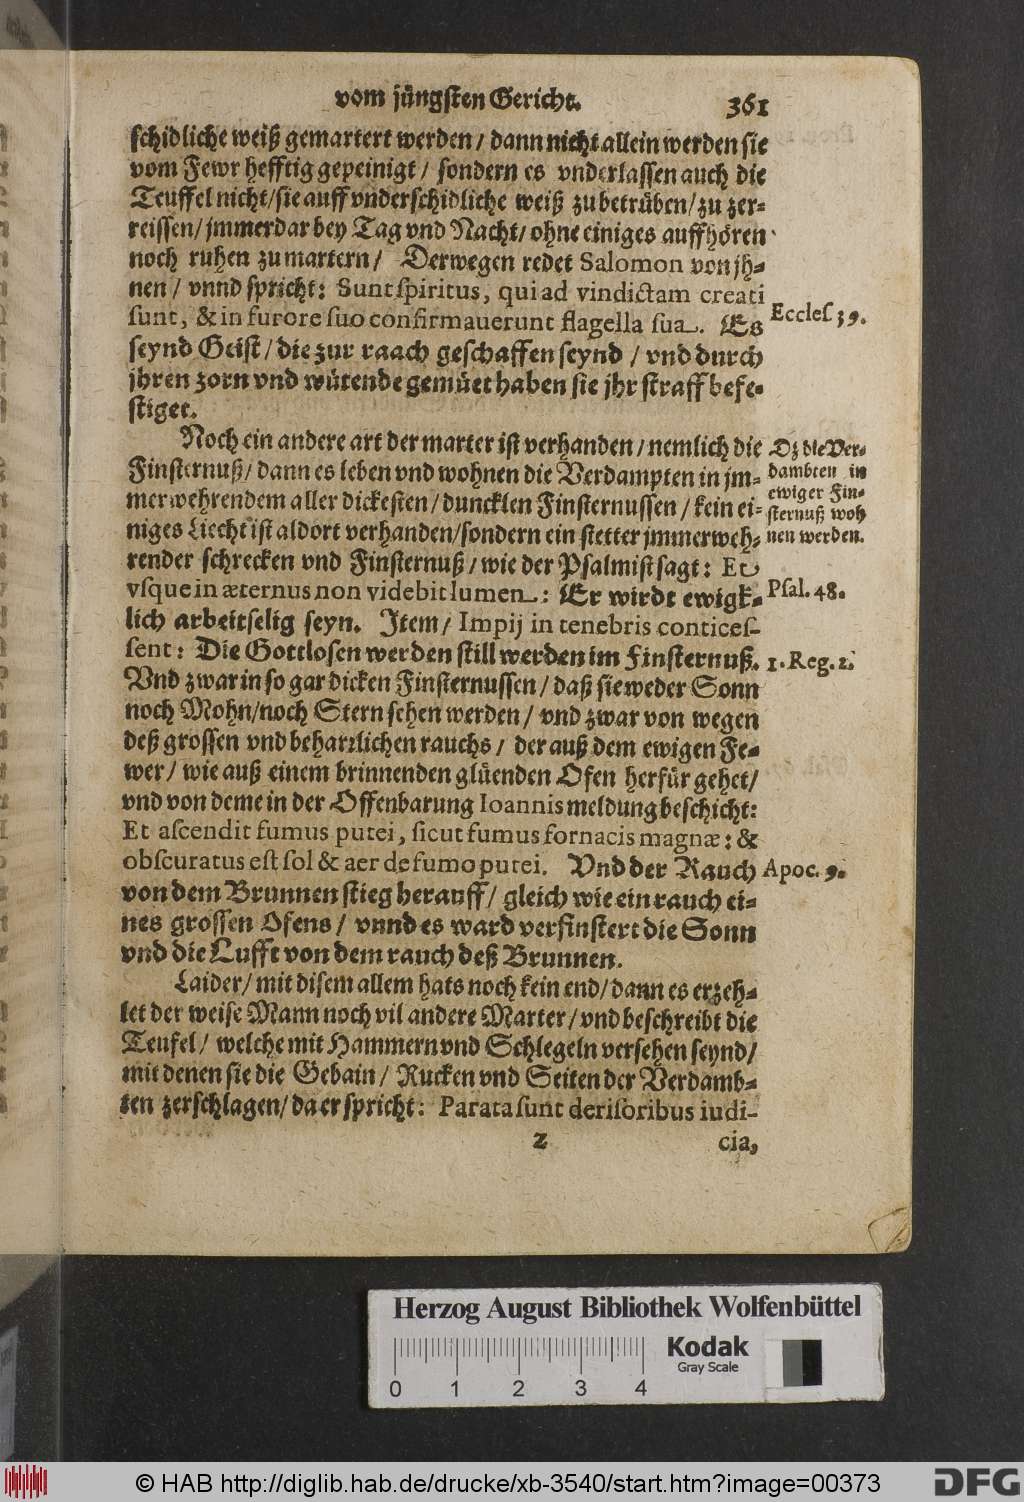 vom jüngsten Gericht. 361
schidliche weiß gemartert werden / dann nicht allein werden sie
vom Fewr hefftig gepeinigt / sondern es vnderlassen auch die
Teuffel nicht / sie auff vnderschidliche weiß zu betrüben / zu zer-
reissen / jmmerdar bey Tag vnd Nacht / ohne einiges auffhören
noch ruhen zu martern / Derwegen redet Salomon von jh-
nen / vnnd spricht: Sunt spiritus, qui ad vindictam creati
sunt, & in furore suo confirmauerunt flagella sua. Es
Eccles. 39.
seynd Geist / die zur raach geschaffen seynd / vnd durch
jhren zorn vnd wütende gemüet haben sie jhr straff befe-
stiget.
Noch ein andere art der marter ist verhanden / nemlich die
Finsternuß / dann es leben vnd wohnen die Verdampten in jm-
merwehrendem aller dickesten / duncklen Finsternussen / kein ei-
niges Liecht ist aldort verhanden / sondern ein stetter jmmerweh-
render schrecken vnd Finsternuß / wie der Psalmist sagt: Et
Dz die Ver-
dambten in
ewiger Fin-
sternuß woh
nen werden.
vsque in æternus non videbit lumen: Er wirdt ewigk-
Psal. 48.
lich arbeitselig seyn. Item / Impij in tenebris contices-
sent: Die Gottlosen werden still werden im Finsternuß.
1. Reg. 2.
Vnd zwar in so gar dicken Finsternussen / daß sie weder Sonn
noch Mohn / noch Stern sehen werden / vnd zwar von wegen
deß grossen vnd beharrlichen rauchs / der auß dem ewigen Fe-
wer / wie auß einem brinnenden glüenden Ofen herfür gehet /
vnd von deme in der Offenbarung Ioannis meldung beschicht:
Et ascendit fumus putei, sicut fumus fornacis magnæ: &
obscuratus est sol & aer de fumo putei. Vnd der Rauch
Apoc. 9.
von dem Brunnen stieg herauff / gleich wie ein rauch ei-
nes grossen Ofens / vnnd es ward verfinstert die Sonn
vnd die Lufft von dem rauch deß Brunnen.
Laider / mit disem allem hats noch kein end / dann es erzeh-
let der weise Mann noch vil andere Marter / vnd beschreibt die
Teufel / welche mit Hammern vnd Schlegeln versehen seynd /
mit denen sie die Gebain / Rucken vnd Seiten der Verdamb-
ten zerschlagen / da er spricht: Parata sunt derisoribus iudi-
Z cia,
Herzog August Bibliothek Wolfenbüttel
Kodak
Gray Scale
0 1 2 3 4
© HAB http://diglib.hab.de/drucke/xb-3540/start.htm?image=00373
DFG